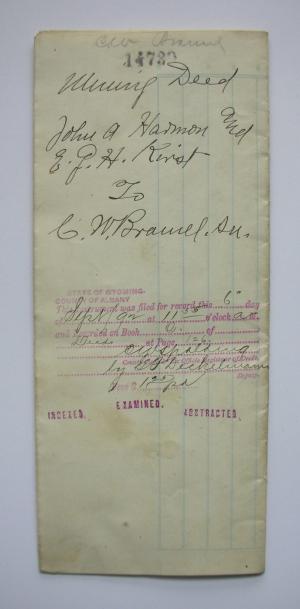 C W Bramel
14739
Mining Deed
John A Harmon and
E. G. H. Kirst
To
C. W. Bramel. Sr.
STATE OF WYOMING,
COUNTY OF ALBANY
This instrument was filed for record this 6 day
Sept. 92 at 11 o'clock A.M.
and Recorded on Book of
Deeds at Page
C. P. Spalding
County Clerk and Ex-Officio Register of Deeds.
by Deputy.
Fees $ pd
INDEXED. EXAMINED. ABSTRACTED.